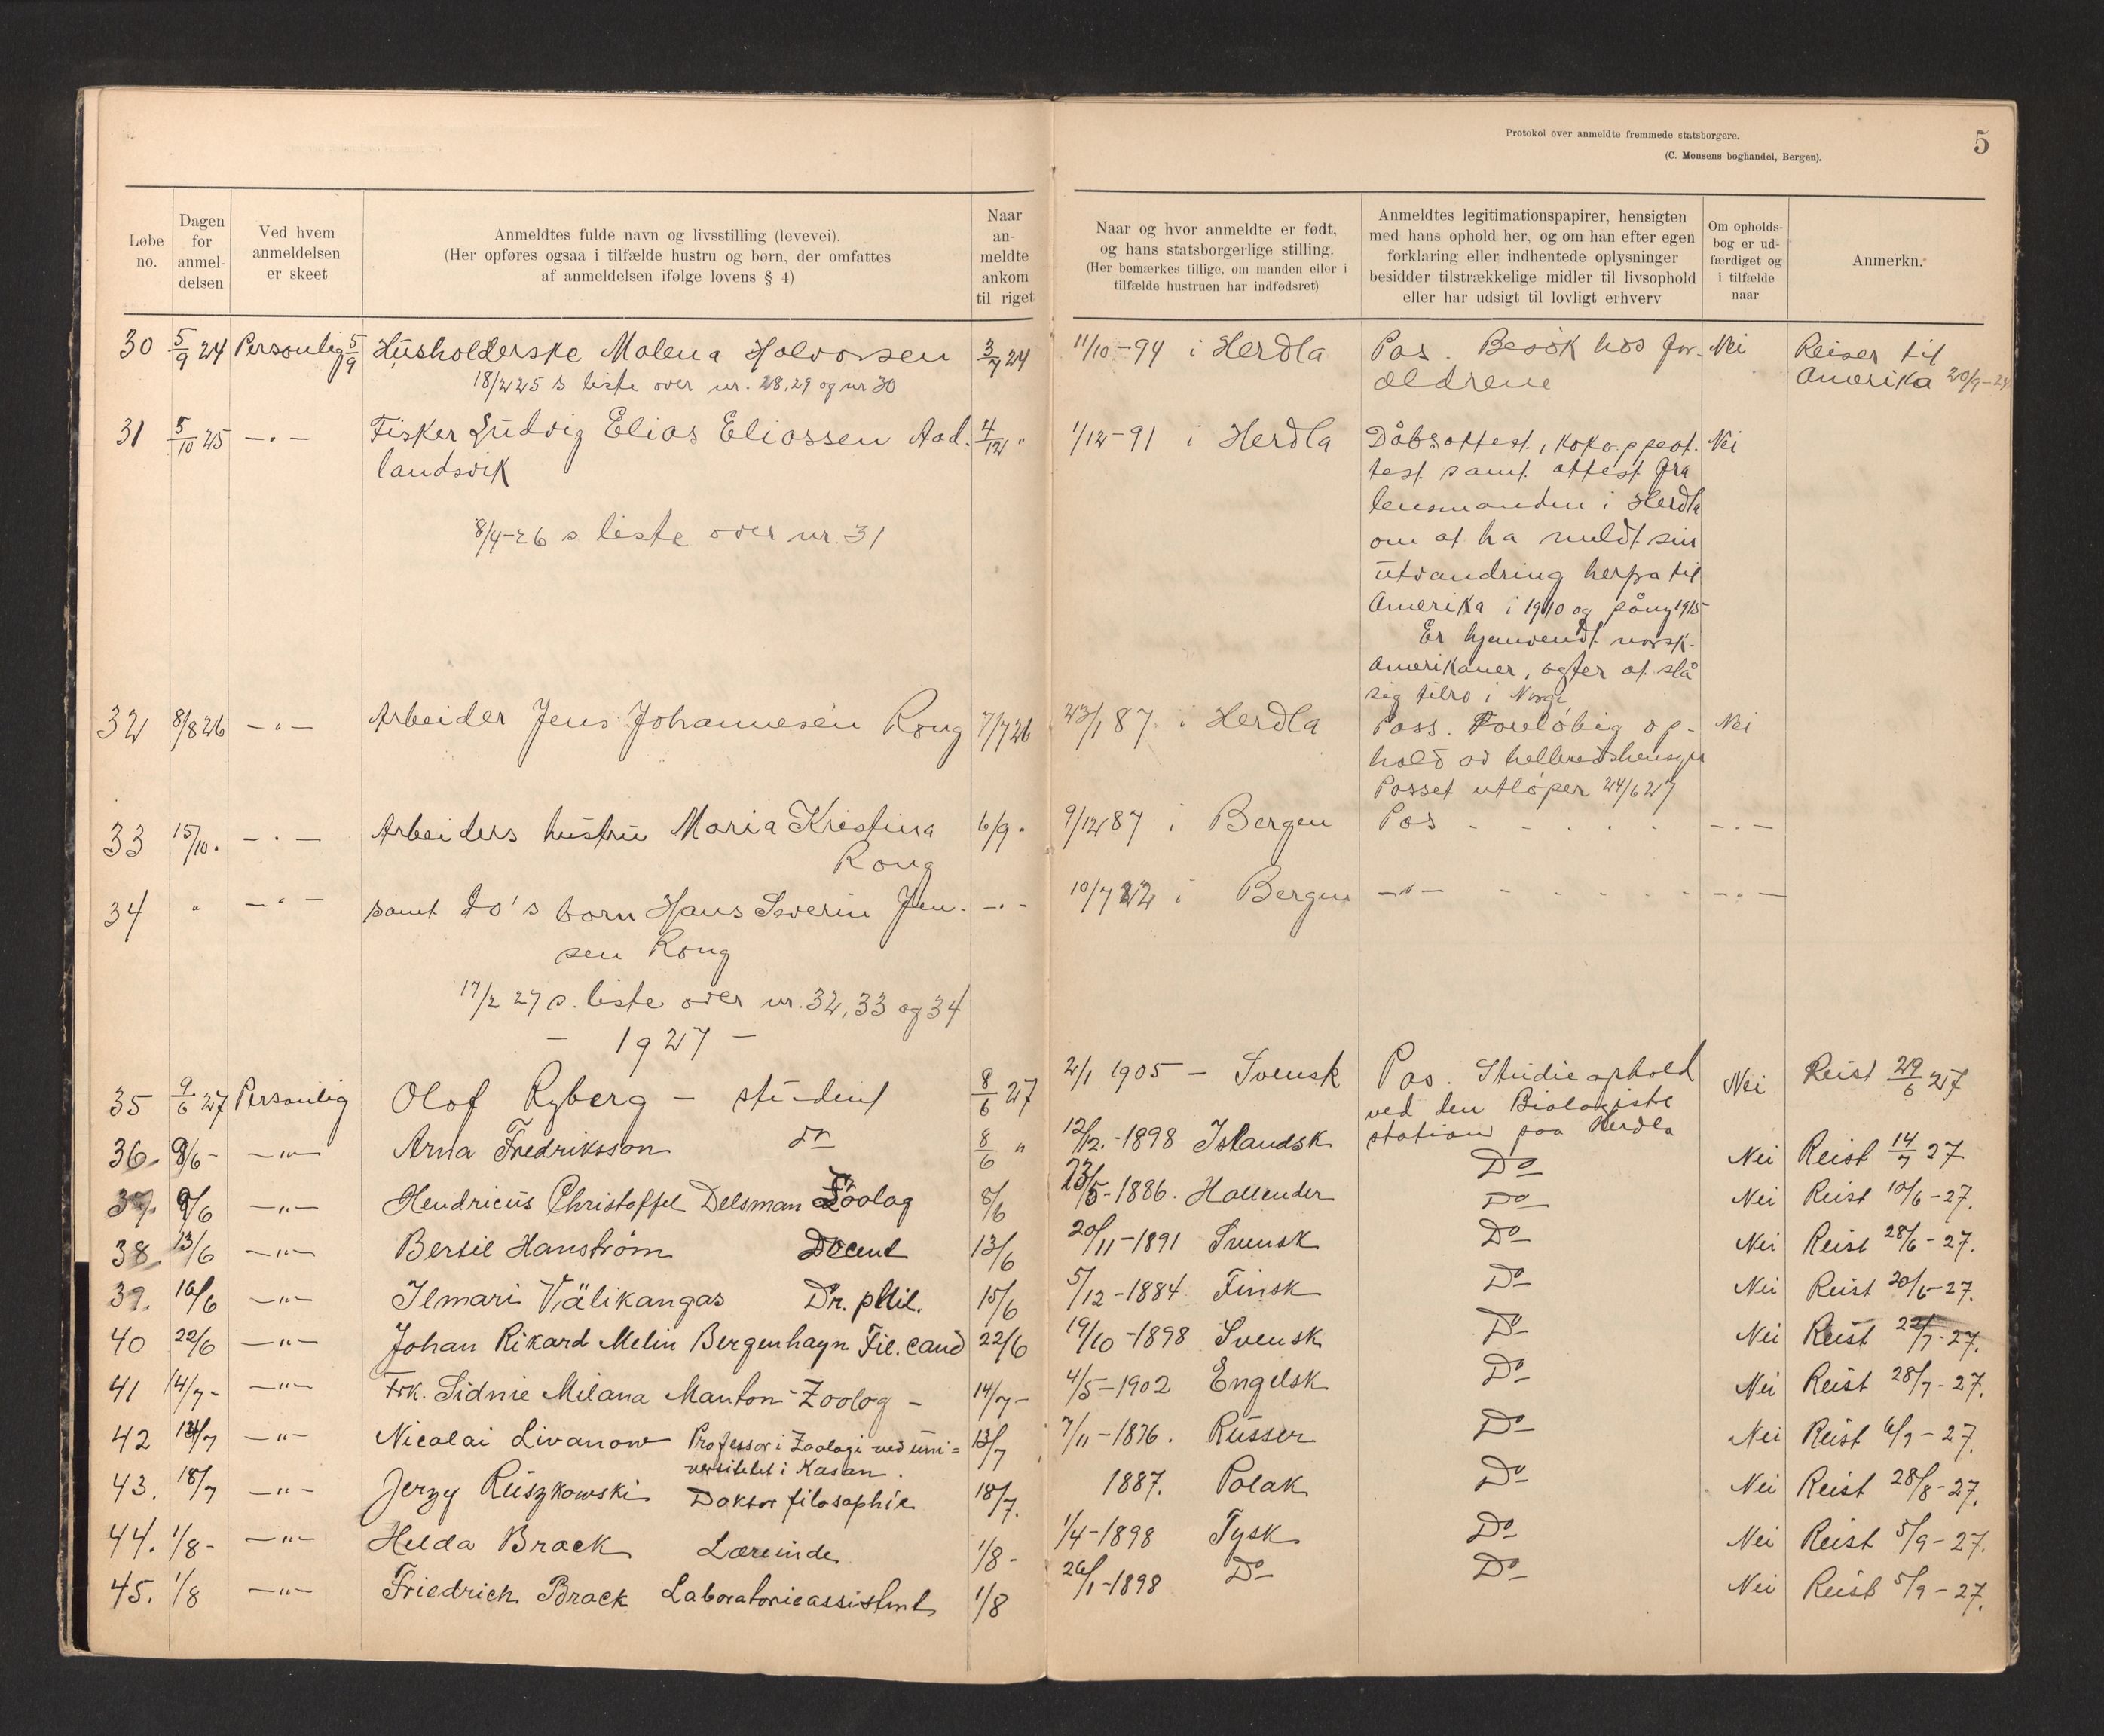 Protokol over anmeldte fremmede statsborgere.
(C. Monsens boghandel, Bergen).
5
Løbe no.
Dagen for anmeldelsen
Ved hvem anmeldelsen er skeet
Anmeldtes fulde navn og livsstilling (levevei).
(Her opføres ogsaa i tilfælde hustru og børn, der omfattes
af anmeldelsen ifølge lovens § 4)
Naar anmeldte ankom til riget
Naar og hvor anmeldte er født,
og hans statsborgerlige stilling.
(Her bemærkes tillige, om manden eller i
tilfælde hustruen har indfødsret)
Anmeldtes legitimationspapirer, hensigten
med hans ophold her, og om han efter egen
forklaring eller indhentede oplysninger
besidder tilstrækkelige midler til livsophold
eller har udsigt til lovligt erhverv
Om opholdsbog er udfærdiget og i tilfælde naar
Anmerkn.
30 5/9 24 Personlig 5/9 Husholderske Malena Halvorsen 3/7 24 11/10-94 i Herdla Pas. Besøk hos for- Nei Reiser til
18/2 25 s liste over nr. 28, 29 og nr 30 ældrene Amerika 20/9-24
31 5/10 25 -"- Fisker Ludvig Elias Eliassen Aad- 4/12 " 1/12-91 i Herdla Dåbsattest, kokoppeat- Nei
landsvik test samt attest fra
lensmanden i Herdla
8/4-26 s liste over nr. 31 om at ha meldt sin
utvandring herfra til
Amerika i 1910 og påny 1915
Er hjemvendt norsk-
amerikaner, agter at slå
sig tilro i Norge
32 8/8 26 -"- Arbeider Jens Johannesen Rong 7/7 26 23/1 87 i Herdla Pass. Foreløbig op- Nei
hold av helbredshensyn
Passet utløper 24/6 27
33 15/10. -"- Arbeiders hustru Maria Kristina 6/9. 9/12 87 i Bergen Pas - - - - - -"-
Rong
34 " -"- samt do's barn Hans Severin Jen- -"- 10/7 22 i Bergen -"- - - - - -"-
sen Rong
17/2 27 s. liste over nr. 32, 33 og 34
- 1927 -
35 9/6 27 Personlig Olof Ryberg - student 8/6 27 2/1 1905 - Svensk Pas. Studieophold Nei Reist 29/6 27
ved den Biologiske
station paa Herdla
36. 9/6- -"- Arna Fredriksson do 8/6 " 12/2.-1898 Islandsk Do Nei Reist 14/7 27
37. 9/6 -"- Hendricus Christoffel Delsman Zoolog 8/6 23/5-1886. Hollender Do Nei Reist 10/6-27.
38. 13/6 -"- Bertil Hanström Docent 13/6 20/11-1891 Svensk Do Nei Reist 28/6-27.
39. 16/6 -"- Ilmari Välikangas Dr. phil. 15/6 5/12-1884 Finsk Do Nei Reist 20/6-27.
40 22/6 -"- Johan Rikard Melin Bergenhayn Fil. cand 22/6 19/10-1898 Svensk Do Nei Reist 22/7-27.
41 14/7- -"- Frk. Sidnie Milana Manton - Zoolog - 14/7- 4/5-1902 Engelsk Do Nei Reist 28/7-27.
42 14/7 -"- Nicolai Livanow Professor i Zoologi ved uni= 13/7 7/11-1876. Russer Do Nei Reist 6/9-27.
versitetet i Kasan.
43. 18/7 -"- Jerzy Ruszkowski Doktor filosophie 18/7. 1887. Polak Do Nei Reist 28/8-27.
44. 1/8- -"- Helda Brock Lærerinde 1/8- 1/4-1898 Tysk Do Nei Reist 5/9-27.
45. 1/8 -"- Friedrich Brock Laboratorieassistent 1/8 26/1-1898 Do Do Nei Reist 5/9-27.